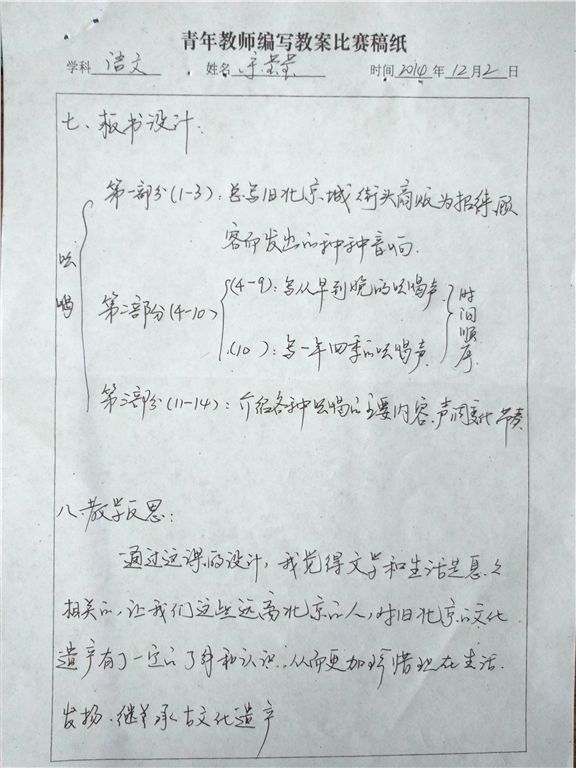 青年教师编写教案比赛稿纸
学科 语文 姓名 时间 2014 年 12 月 2 日
七、板书设计:
吆喝
第一部分(1-3):总写旧北京城街头商贩为招待顾
客而发出的种种音响.
第二部分(4-10)
(4-9):写从早到晚的吆喝声
(10):写一年四季的吆喝声
时间顺序
第三部分(11-14):介绍各种吆喝的主要内容.声调变化 节奏
八 教学反思:
通过这课的设计,我觉得文学和生活是息息
相关的,让我们这些远离北京的人,对旧北京的文化
遗产有了一定的了解和认识.从而更加珍惜现在生活.
发扬.继承古文化遗产